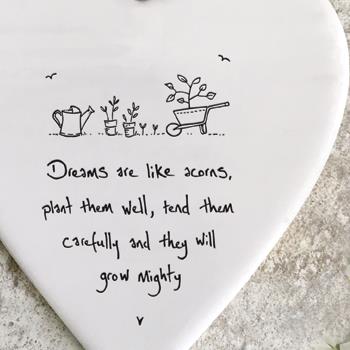 Dreams are like acorns,
plant them well, tend them
carefully and they will
grow mighty